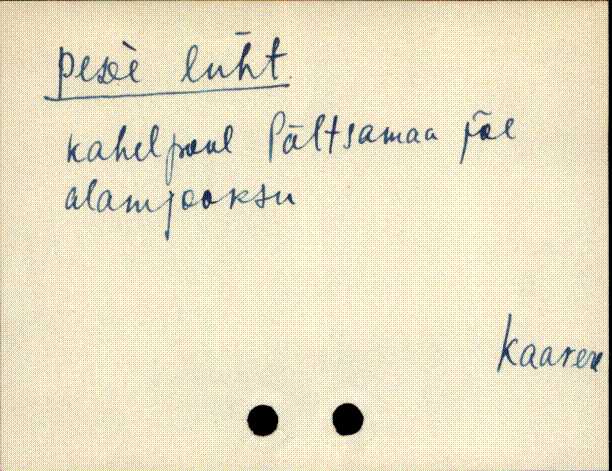 pesè lūht
kahelpool Põltsamaa jõe
alamjooksu
Kaaren